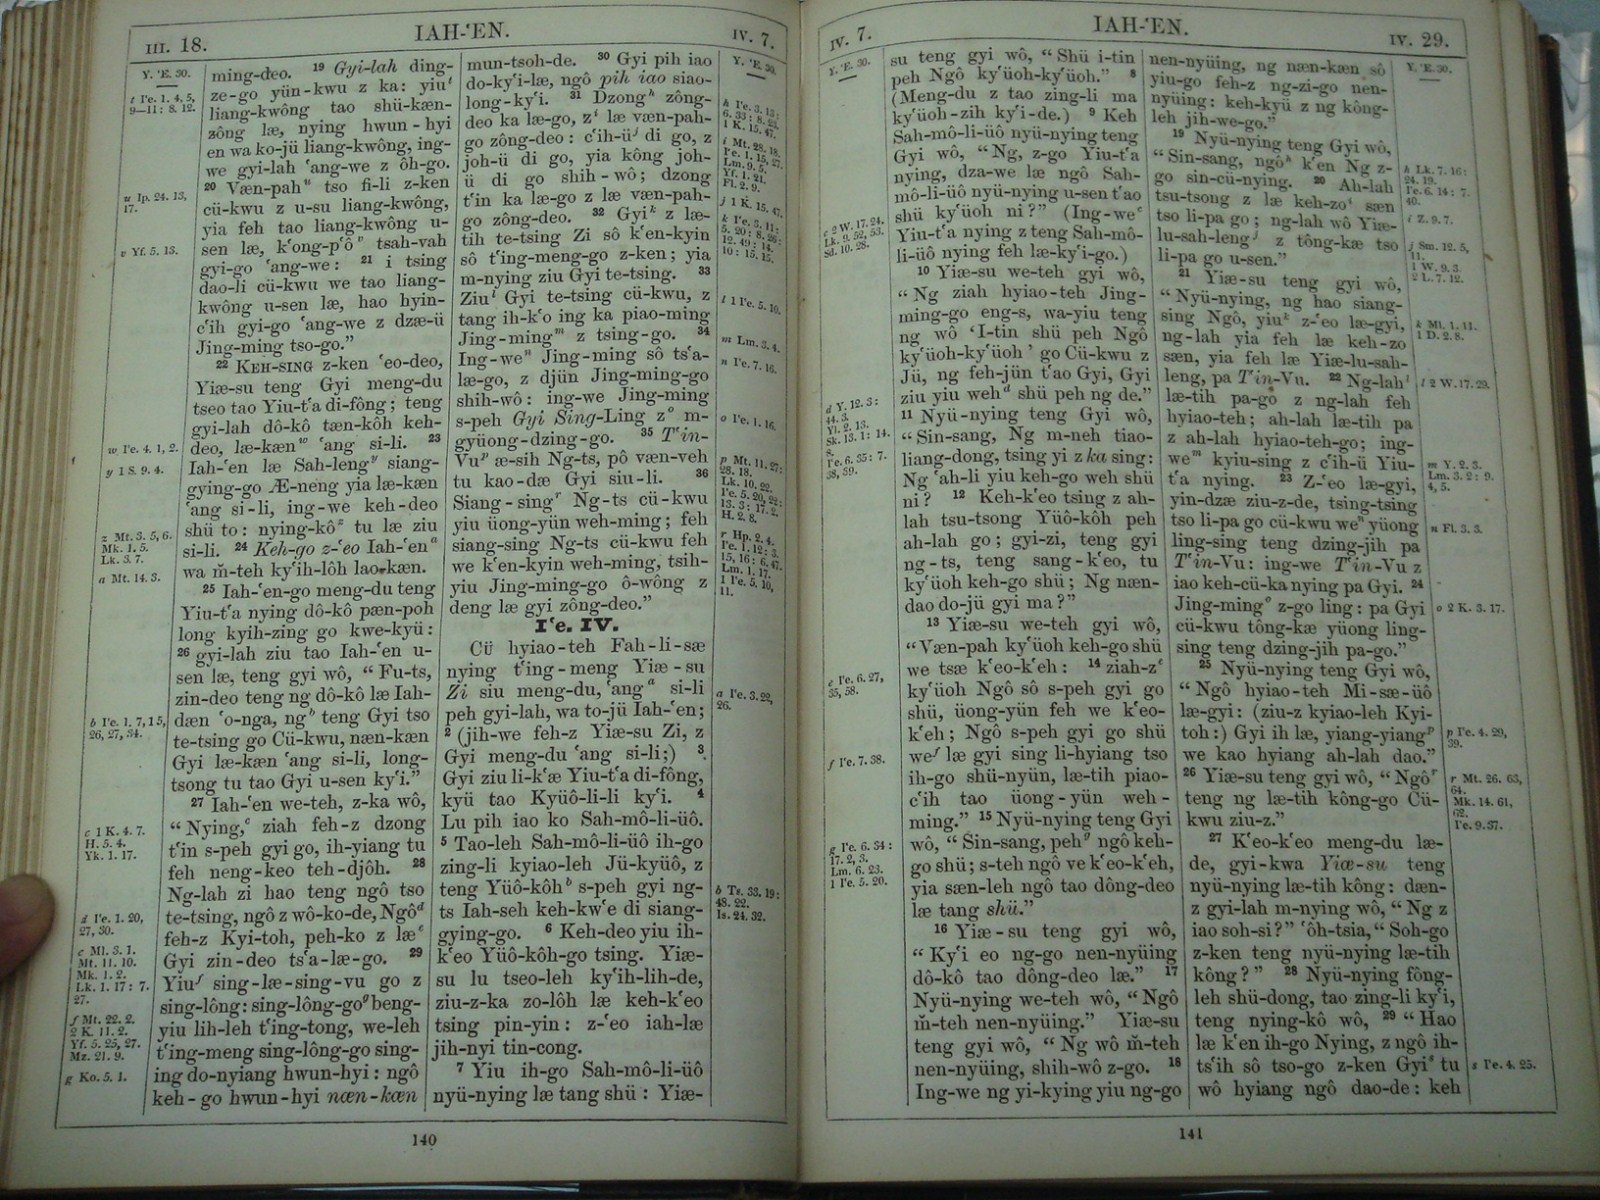 III. 18.
IAH-ʻEN.
IV. 7.
Y. ʻE. 30.
t Iʻe. 1. 4, 5,
9—11: 8. 12.
u Ip. 24. 13,
17.
v Yf. 5. 13.
w Iʻe. 4. 1, 2.
y 1 S. 9. 4.
z Mt. 3. 5, 6.
Mk. 1. 5.
Lk. 3. 7.
a Mt. 14. 3.
b Iʻe. 1. 7, 15,
26, 27, 34.
c 1 K. 4. 7.
H. 5. 4.
Yk. 1. 17.
d Iʻe. 1. 20,
27, 30.
e Ml. 3. 1.
Mt. 11. 10.
Mk. 1. 2.
Lk. 1. 17: 7.
27.
f Mt. 22. 2.
2 K. 11. 2.
Yf. 5. 25, 27.
Mz. 21. 9.
g Ko. 5. 1.
ming-deo. 19 Gyi-lah ding-
ze-go yün-kwu z ka: yiuᵗ
liang-kwông tao shü-kæn-
zông læ, nying hwun-hyi
en wa ko-jü liang-kwông, ing-
we gyi-lah ʻang-we z ôh-go.
20 Væn-pahᵘ tso fi-li z-ken
cü-kwu z u-su liang-kwông,
yia feh tao liang-kwông u-
sen læ, kʻong-pʻôᵛ tsah-vah
gyi-go ʻang-we: 21 i tsing
dao-li cü-kwu we tao liang-
kwông u-sen læ, hao hyin-
cʻih gyi-go ʻang-we z dzæ-ü
Jing-ming tso-go.”
22 KEH-SING z-ken ʻeo-deo,
Yiæ-su teng Gyi meng-du
tseo tao Yiu-tʻa di-fông; teng
gyi-lah dô-kô tæn-kôh keh-
deo, læ-kænʷ ʻang si-li. 23
Iah-ʻen læ Sah-lengʸ siang-
gying-go Æ-neng yia læ-kæn
ʻang si-li, ing-we keh-deo
shü to: nying-kôᶻ tu læ ziu
si-li. 24 Keh-go z-ʻeo Iah-ʻenᵃ
wa m̆-teh kyʻih-lôh lao-kæn.
25 Iah-ʻen-go meng-du teng
Yiu-tʻa nying dô-kô pæn-poh
long kyih-zing go kwe-kyü:
26 gyi-lah ziu tao Iah-ʻen u-
sen læ, teng gyi wô, “ Fu-ts,
zin-deo teng ng dô-kô læ Iah-
dæn ʻo-nga, ngᵇ teng Gyi tso
te-tsing go Cü-kwu, næn-kæn
Gyi læ-kæn ʻang si-li, long-
tsong tu tao Gyi u-sen kyʻi.”
27 Iah-ʻen we-teh, z-ka wô,
“ Nying,ᶜ ziah feh-z dzong
tʻin s-peh gyi go, ih-yiang tu
feh neng-keo teh-djôh. 28
Ng-lah zi hao teng ngô tso
te-tsing, ngô z wô-ko-de, Ngôᵈ
feh-z Kyi-toh, peh-ko z læᵉ
Gyi zin-deo tsʻa-læ-go. 29
Yiuᶠ sing-læ-sing-vu go z
sing-lông: sing-lông-goᵍ beng-
yiu lih-leh tʻing-tong, we-leh
tʻing-meng sing-lông-go sing-
ing do-nyiang hwun-hyi: ngô
keh-go hwun-hyi næn-kæn
mun-tsoh-de. 30 Gyi pih iao
do-kyʻi-læ, ngô pih iao siao-
long-kyʻi. 31 Dzongʰ zông-
deo ka læ-go, zⁱ læ væn-pah-
go zông-deo: cʻih-üʲ di go, z
joh-ü di go, yia kông joh-
ü di go shih-wô; dzong
tʻin ka læ-go z læ væn-pah-
go zông-deo. 32 Gyiᵏ z læ-
tih te-tsing Zi sô kʻen-kyin
sô tʻing-meng-go z-ken; yia
m-nying ziu Gyi te-tsing. 33
Ziuˡ Gyi te-tsing cü-kwu, z
tang ih-kʻo ing ka piao-ming
Jing-mingᵐ z tsing-go. 34
Ing-weⁿ Jing-ming sô tsʻa-
læ-go, z djün Jing-ming-go
shih-wô: ing-we Jing-ming
s-peh Gyi Sing-Ling zᵒ m-
gyüong-dzing-go. 35 Tʻin-
Vuᵖ æ-sih Ng-ts, pô væn-veh
tu kao-dæ Gyi siu-li. 36
Siang-singʳ Ng-ts cü-kwu
yiu üong-yün weh-ming; feh
siang-sing Ng-ts cü-kwu feh
we kʻen-kyin weh-ming, tsih-
yiu Jing-ming-go ô-wông z
deng læ gyi zông-deo.”
Iʻe. IV.
Cü hyiao-teh Fah-li-sæ
nying tʻing-meng Yiæ-su
Zi siu meng-du, ʻangᵃ si-li
peh gyi-lah, wa to-jü Iah-ʻen;
2 (jih-we feh-z Yiæ-su Zi, z
Gyi meng-du ʻang si-li;) 3
Gyi ziu li-kʻæ Yiu-tʻa di-fông,
kyü tao Kyüô-li-li kyʻi. 4
Lu pih iao ko Sah-mô-li-üô.
5 Tao-leh Sah-mô-li-üô ih-go
zing-li kyiao-leh Jü-kyüô, z
teng Yüô-kôhᵇ s-peh gyi ng-
ts Iah-seh keh-kwʻe di siang-
gying-go. 6 Keh-deo yiu ih-
kʻeo Yüô-kôh-go tsing. Yiæ-
su lu tseo-leh kyʻih-lih-de,
ziu-z-ka zo-lôh læ keh-kʻeo
tsing pin-yin: z-ʻeo iah-læ
jih-nyi tin-cong.
7 Yiu ih-go Sah-mô-li-üô
nyü-nying læ tang shü: Yiæ-
Y. ʻE. 30.
h Iʻe. 3. 13:
6. 33: 8. 23.
1 K. 15. 47.
i Mt. 28. 18.
Iʻe. 1. 15, 27.
Lm. 9. 5.
Yf. 1. 21.
Fl. 2. 9.
j 1 K. 15. 47.
k Iʻe. 3. 11:
5. 20: 8. 26:
12. 49: 14.
10: 15. 15.
l 1 Iʻe. 5. 10.
m Lm. 3. 4.
n Iʻe. 7. 16.
o Iʻe. 1. 16.
p Mt. 11. 27:
28. 18.
Lk. 10. 22.
Iʻe. 5. 20, 22:
13. 3: 17. 2.
H. 2. 8.
r Hp. 2. 4.
Iʻe. 1. 12: 3.
15, 16: 6. 47.
Lm. 1. 17.
1 Iʻe. 5. 10,
11.
a Iʻe. 3. 22,
26.
b Ts. 33. 19:
48. 22.
Is. 24. 32.
140
IV. 7.
IAH-ʻEN.
IV. 29.
Y. ʻE. 30.
c 2 W. 17. 24.
Lk. 9. 52, 53.
Sd. 10. 28.
d Y. 12. 3:
44. 3.
Yl. 2. 13.
Sk. 13. 1: 14.
8.
Iʻe. 6. 35: 7.
38, 39.
e Iʻe. 6. 27,
35, 58.
f Iʻe. 7. 38.
g Iʻe. 6. 34:
17. 2, 3.
Lm. 6. 23.
1 Iʻe. 5. 20.
su teng gyi wô, “ Shü i-tin
peh Ngô kyʻüoh-kyʻüoh.” 8
(Meng-du z tao zing-li ma
kyʻüoh-zih kyʻi-de.) 9 Keh
Sah-mô-li-üô nyü-nying teng
Gyi wô, “ Ng, z-go Yiu-tʻa
nying, dza-we læ ngô Sah-
mô-li-üô nyü-nying u-sen tʻao
shü kyʻüoh ni?” (Ing-weᶜ
Yiu-tʻa nying z teng Sah-mô-
li-üô nying feh læ-kyʻi-go.)
10 Yiæ-su we-teh gyi wô,
“ Ng ziah hyiao-teh Jing-
ming-go eng-s, wa-yiu teng
ng wô ‘ I-tin shü peh Ngô
kyʻüoh-kyʻüoh ’ go Cü-kwu z
Jü, ng feh-jün tʻao Gyi, Gyi
ziu yiu wehᵈ shü peh ng de.”
11 Nyü-nying teng Gyi wô,
“ Sin-sang, Ng m-neh tiao-
liang-dong, tsing yi z ka sing:
Ng ʻah-li yiu keh-go weh shü
ni? 12 Keh-kʻeo tsing z ah-
lah tsu-tsong Yüô-kôh peh
ah-lah go; gyi-zi, teng gyi
ng-ts, teng sang-kʻeo, tu
kyʻüoh keh-go shü; Ng næn-
dao do-jü gyi ma?”
13 Yiæ-su we-teh gyi wô,
“Væn-pah kyʻüoh keh-go shü
we tsæ kʻeo-kʻeh: 14 ziah-zᵉ
kyʻüoh Ngô sô s-peh gyi go
shü, üong-yün feh we kʻeo-
kʻeh; Ngô s-peh gyi go shü
weᶠ læ gyi sing li-hyiang tso
ih-go shü-nyün, læ-tih piao-
cʻih tao üong-yün weh-
ming.” 15 Nyü-nying teng Gyi
wô, “ Sin-sang, pehᵍ ngô keh-
go shü; s-teh ngô ve kʻeo-kʻeh,
yia sæn-leh ngô tao dông-deo
læ tang shü.”
16 Yiæ-su teng gyi wô,
“ Kyʻi eo ng-go nen-nyüing
dô-kô tao dông-deo læ.” 17
Nyü-nying we-teh wô, “ Ngô
m̆-teh nen-nyüing.” Yiæ-su
teng gyi wô, “ Ng wô m̆-teh
nen-nyüing, shih-wô z-go. 18
Ing-we ng yi-kying yiu ng-go
nen-nyüing, ng næn-kæn sô
yiu-go feh-z ng-zi-go nen-
nyüing: keh-kyü z ng kông-
leh jih-we-go.”
19 Nyü-nying teng Gyi wô,
“ Sin-sang, ngôʰ kʻen Ng z-
go sin-cü-nying. 20 Ah-lah
tsu-tsong z læ keh-zoⁱ sæn
tso li-pa go; ng-lah wô Yiæ-
lu-sah-lengʲ z tông-kæ tso
li-pa go u-sen.”
21 Yiæ-su teng gyi wô,
“ Nyü-nying, ng hao siang-
sing Ngô, yiuᵏ z-ʻeo læ-gyi,
ng-lah yia feh læ keh-zo
sæn, yia feh læ Yiæ-lu-sah-
leng, pa Tʻin-Vu. 22 Ng-lahˡ
læ-tih pa-go z ng-lah feh
hyiao-teh; ah-lah læ-tih pa
z ah-lah hyiao-teh-go; ing-
weᵐ kyiu-sing z cʻih-ü Yiu-
tʻa nying. 23 Z-ʻeo læ-gyi,
yin-dzæ ziu-z-de, tsing-tsing
tso li-pa go cü-kwu weⁿ yüong
ling-sing teng dzing-jih pa
Tʻin-Vu: ing-we Tʻin-Vu z
iao keh-cü-ka nying pa Gyi. 24
Jing-mingᵒ z-go ling: pa Gyi
cü-kwu tông-kæ yüong ling-
sing teng dzing-jih pa-go.”
25 Nyü-nying teng Gyi wô,
“ Ngô hyiao-teh Mi-sæ-üô
læ-gyi: (ziu-z kyiao-leh Kyi-
toh:) Gyi ih læ, yiang-yiangᵖ
we kao hyiang ah-lah dao.”
26 Yiæ-su teng gyi wô, “ Ngôʳ
teng ng læ-tih kông-go Cü-
kwu ziu-z.”
27 Kʻeo-kʻeo meng-du læ-
de, gyi-kwa Yiæ-su teng
nyü-nying læ-tih kông: dæn-
z gyi-lah m-nying wô, “ Ng z
iao soh-si?” ʻôh-tsia, “ Soh-go
z-ken teng nyü-nying læ-tih
kông? ” 28 Nyü-nying fông-
leh shü-dong, tao zing-li kyʻi,
teng nying-kô wô, 29 “ Hao
læ kʻen ih-go Nying, z ngô ih-
tsʻih sô tso-go z-ken Gyiˢ tu
wô hyiang ngô dao-de: keh
Y. ʻE. 30.
h Lk. 7. 16:
24. 19.
Iʻe. 6. 14: 7.
40.
i Z. 9. 7.
j Sm. 12. 5,
11.
1 W. 9. 3.
2 L. 7. 12.
k Ml. 1. 11.
1 D. 2. 8.
l 2 W. 17. 29.
m Y. 2. 3.
Lm. 3. 2: 9.
4, 5.
n Fl. 3. 3.
o 2 K. 3. 17.
p Iʻe. 4. 29,
39.
r Mt. 26. 63,
64.
Mk. 14. 61,
62.
Iʻe. 9. 37.
s Iʻe. 4. 25.
141